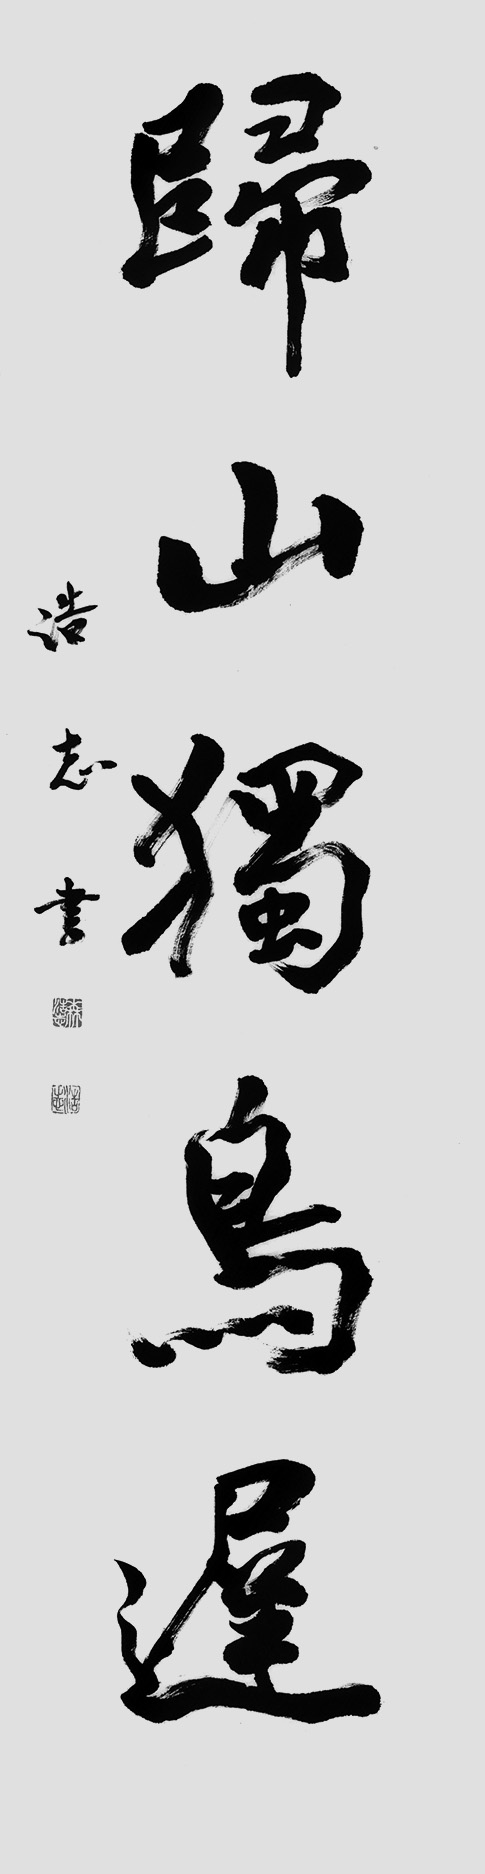 歸山獨鳥遲
浩志書